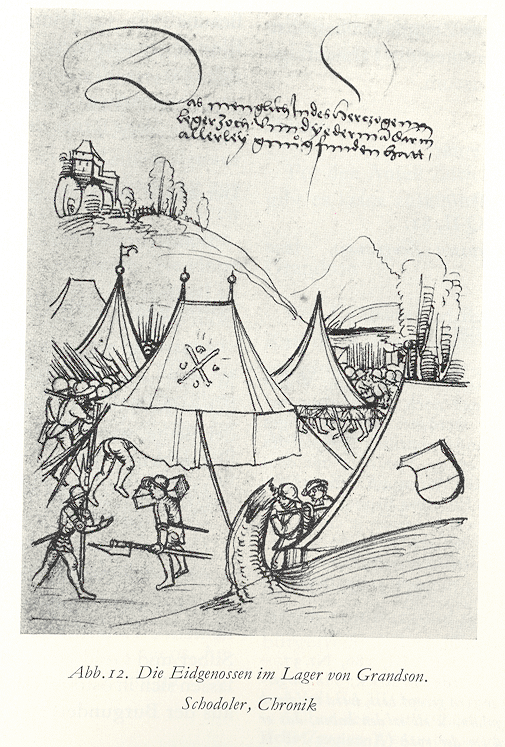 Das menglich In des hertzogenn
leger zoch Vnnd yederman darin
allerley gnůg funden hatt,
Abb. 12. Die Eidgenossen im Lager von Grandson.
Schodoler, Chronik